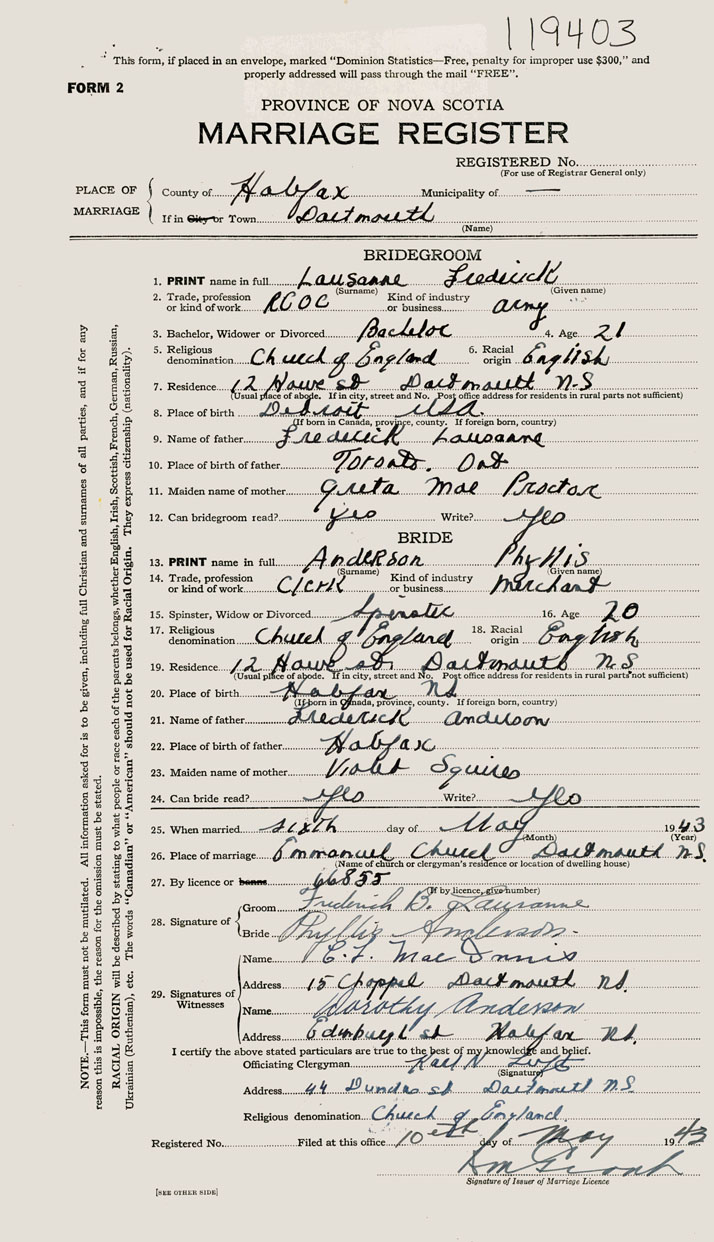 119403
This form, if placed in an envelope, marked "Dominion Statistics—Free, penalty for improper use $300," and
properly addressed will pass through the mail "FREE".
FORM 2
PROVINCE OF NOVA SCOTIA
MARRIAGE REGISTER
REGISTERED No.
(For use of Registrar General only)
PLACE OF MARRIAGE
County of Halifax Municipality of —
If in City or Town Dartmouth
(Name)
BRIDEGROOM
1. PRINT name in full Lausanne Frederick
(Surname) (Given name)
2. Trade, profession or kind of work RCOC Kind of industry or business army
3. Bachelor, Widower or Divorced Bachelor 4. Age 21
5. Religious denomination Church of England 6. Racial origin English
7. Residence 12 Howe st Dartmouth N.S
(Usual place of abode. If in city, street and No. Post office address for residents in rural parts not sufficient)
8. Place of birth Detroit USA.
(If born in Canada, province, county. If foreign born, country)
9. Name of father Frederick Lausanne
10. Place of birth of father Toronto. Ont
11. Maiden name of mother Greta Mae Proctor
12. Can bridegroom read? yes Write? yes
BRIDE
13. PRINT name in full Anderson Phyllis
(Surname) (Given name)
14. Trade, profession or kind of work Clerk Kind of industry or business Merchant
15. Spinster, Widow or Divorced Spinster 16. Age 20
17. Religious denomination Church of England 18. Racial origin English
19. Residence 12 Howe st Dartmouth N.S
(Usual place of abode. If in city, street and No. Post office address for residents in rural parts not sufficient)
20. Place of birth Halifax NS
(If born in Canada, province, county. If foreign born, country)
21. Name of father Frederick Anderson
22. Place of birth of father Halifax
23. Maiden name of mother Violet Squires
24. Can bride read? yes Write? yes
25. When married sixth day of May 1943
(Month) (Year)
26. Place of marriage Emmanuel Church Dartmouth N.S.
(Name of church or clergyman's residence or location of dwelling house)
27. By licence or banns 66855
(If by licence, give number)
28. Signature of
Groom Frederick B. Lausanne
Bride Phyllis Anderson.
29. Signatures of Witnesses
Name C. F. MacInnis
Address 15 Chappel Dartmouth NS.
Name Dorothy Anderson
Address Edinburgh st Halifax NS.
I certify the above stated particulars are true to the best of my knowledge and belief.
Officiating Clergyman Karl N
(Signature)
Address 44 Dundas st Dartmouth N.S.
Religious denomination Church of England.
Registered No. Filed at this office 10 eth day of May 1943
Signature of Issuer of Marriage Licence
[SEE OTHER SIDE]
NOTE.—This form must not be mutilated. All information asked for is to be given, including full Christian and surnames of all parties, and if for any
reason this is impossible, the reason for the omission must be stated.
RACIAL ORIGIN will be described by stating to what people or race each of the parents belongs, whether English, Irish, Scottish, French, German, Russian,
Ukrainian (Ruthenian), etc. The words "Canadian" or "American" should not be used for Racial Origin. They express citizenship (nationality).